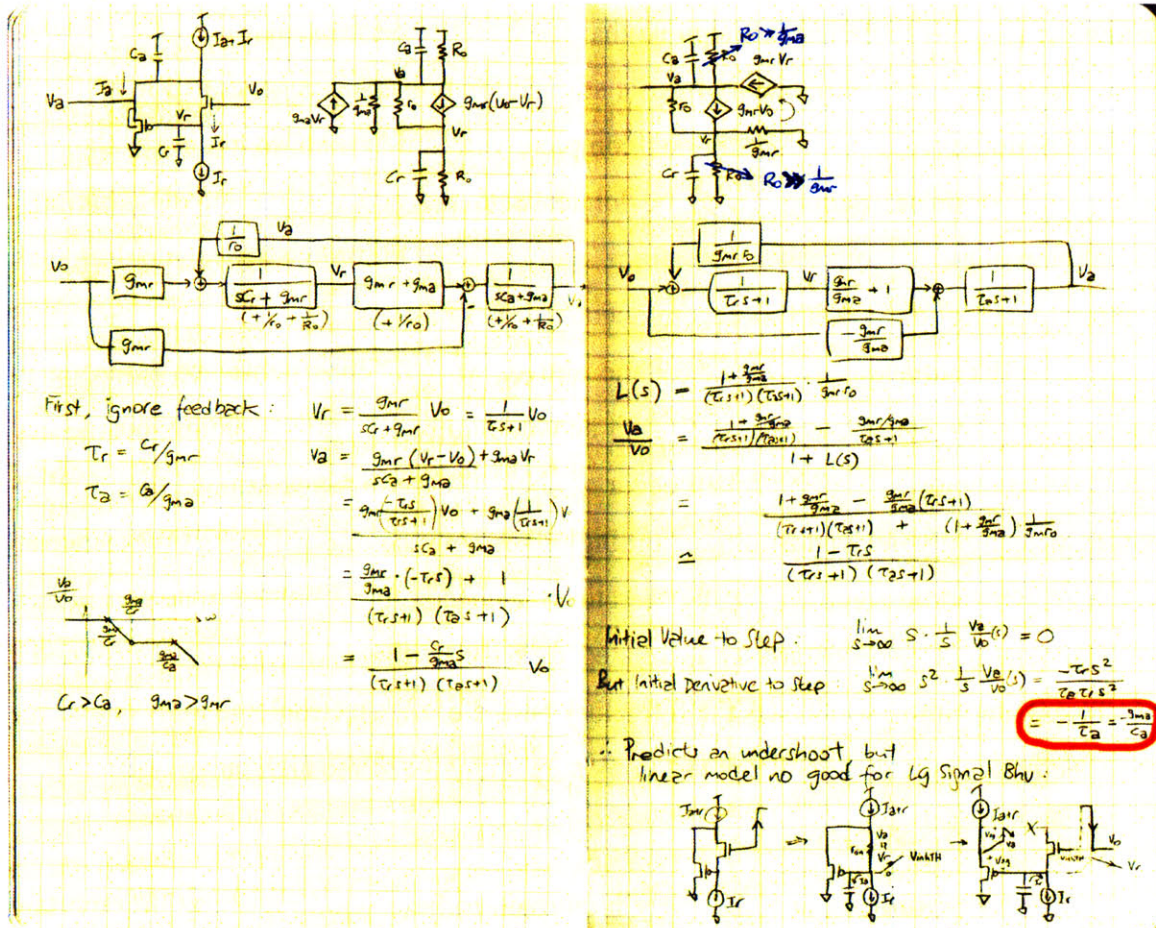 Ca
Ia+Ir
Ia
Va
Vo
Vr
Ir
Cr
Ir
Ca
Ro
Va
gmaVr
1/gma
ro
gmr(Vo-Vr)
Vr
Cr
Ro
Vo
gmr
1/ro
Va
1/(sCr + gmr)
(+1/ro + 1/Ro)
Vr
gmr + gma
(+1/ro)
1/(sCa + gma)
(+1/ro + 1/Ro)
gmr
First, ignore feedback:
τr = Cr/gmr
τa = Ca/gma
Vr = gmr/(sCr + gmr) Vo = 1/(τrs+1) Vo
Va = (gmr (Vr - Vo) + gmaVr)/(sCa + gma)
= (gmr(-τrs/(τrs+1)) Vo + gma(1/(τrs+1)) V)/(sCa + gma)
= (gmr/gma · (-τrs) + 1)/((τrs+1) (τas+1)) · Vo
= (1 - Cr/gma s)/((τrs+1) (τas+1)) Vo
Va/Vo
gma/Cr
ω
gmr/Cr
gma/Ca
Cr > Ca, gma > gmr
Ro >> 1/gma
Ca
Ro
gmrVr
Va
ro
gmrVo
Vr
1/gmr
Cr
Ro
Ro >> 1/gmr
1/(gmr ro)
Vo
1/(τrs+1)
Vr
gmr/gma + 1
1/(τas+1)
Va
-gmr/gma
L(s) = (1 + gmr/gma)/((τrs+1)(τas+1)) · 1/(gmr ro)
Va/Vo = ((1 + gmr/gma)/((τrs+1)(τas+1)) - (gmr/gma)/(τas+1))/(1 + L(s))
= (1 + gmr/gma - gmr/gma (τrs+1))/((τrs+1)(τas+1) + (1 + gmr/gma) 1/(gmr ro))
≃ (1 - τrs)/((τrs+1) (τas+1))
Initial Value to Step: lim s→∞ s · 1/s Va/Vo(s) = 0
But Initial Derivative to Step: lim s→∞ s² · 1/s Va/Vo(s) = -τrs²/(τaτrs²)
= -1/τa = -gma/Ca
∴ Predicts an undershoot, but
linear model no good for Lg Signal Bhv:
Ia+r
Ir
Ia+r
Va
Vr
Ir
Ia+r
X
Vo
Vr
Ir